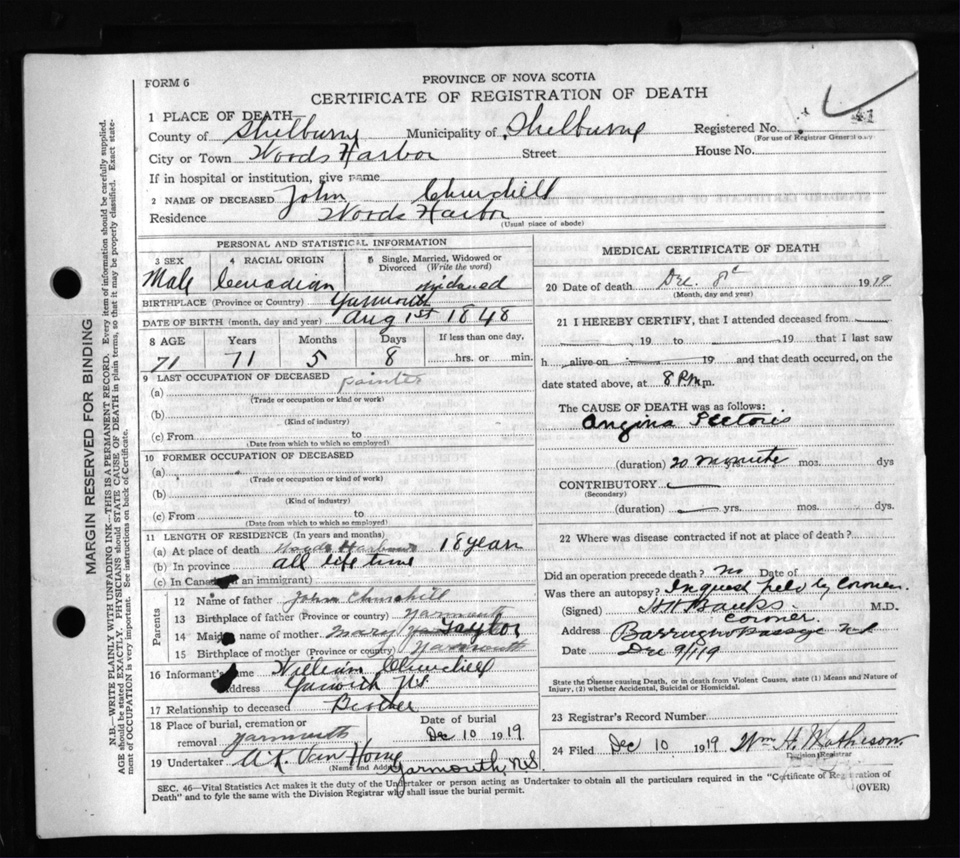 FORM 6
PROVINCE OF NOVA SCOTIA
CERTIFICATE OF REGISTRATION OF DEATH
1 PLACE OF DEATH
County of Shelburne Municipality of Shelburne Registered No.
(For use of Registrar General only)
City or Town Woods Harbor Street House No.
If in hospital or institution, give name
2 NAME OF DECEASED John Churchill
Residence Woods Harbor
(Usual place of abode)
PERSONAL AND STATISTICAL INFORMATION
3 SEX 4 RACIAL ORIGIN 5 Single, Married, Widowed or Divorced (Write the word)
Male Canadian widowed
BIRTHPLACE (Province or Country) Yarmouth
DATE OF BIRTH (month, day and year) Aug 1st 1848
8 AGE Years Months Days If less than one day,
71 71 5 8 hrs. or min.
9 LAST OCCUPATION OF DECEASED painter
(a)
(Trade or occupation or kind or work)
(b)
(Kind of industry)
(c) From to
(Date from which to which so employed)
10 FORMER OCCUPATION OF DECEASED
(a)
(Trade or occupation or kind of work)
(b)
(Kind of industry)
(c) From to
(Date from which to which so employed)
11 LENGTH OF RESIDENCE (In years and months)
(a) At place of death Woods Harbour 18 years
(b) In province all life time
(c) In Canada (if an immigrant)
Parents
12 Name of father John Churchill
13 Birthplace of father (Province or country) Yarmouth
14 Maiden name of mother Mary Taylor
15 Birthplace of mother (Province or country) Yarmouth
16 Informant's name William Churchill
Address N.S.
17 Relationship to deceased Brother
18 Place of burial, cremation or removal Yarmouth Date of burial Dec 10 1919
19 Undertaker Van Horne
(Name and Address) Yarmouth, N.S.
MEDICAL CERTIFICATE OF DEATH
20 Date of death Dec. 8 1919
(Month, day and year)
21 I HEREBY CERTIFY, that I attended deceased from
, 19 to 19 that I last saw
h alive on 19 and that death occurred, on the
date stated above, at 8 P.M m.
The CAUSE OF DEATH was as follows:
Angina Pectoris
(duration) 20 minutes mos. dys
CONTRIBUTORY
(Secondary)
(duration) yrs. mos. dys.
22 Where was disease contracted if not at place of death?
Did an operation precede death? No Date of
Was there an autopsy? Inquest held by Coroner.
(Signed) Banks M.D.
Coroner.
Address Barrington Passage N.S
Date Dec 9/19
State the Disease causing Death, or in death from Violent Causes, state (1) Means and Nature of
Injury, (2) whether Accidental, Suicidal or Homicidal.
23 Registrar's Record Number
24 Filed Dec 10 1919 Wm H. Matheson
Division Registrar
SEC. 46—Vital Statistics Act makes it the duty of the Undertaker or person acting as Undertaker to obtain all the particulars required in the "Certificate of Registration of
Death" and to fyle the same with the Division Registrar who shall issue the burial permit.
(OVER)
MARGIN RESERVED FOR BINDING
N.B.—WRITE PLAINLY WITH UNFADING INK—THIS IS A PERMANENT RECORD. Every item of information should be carefully supplied.
AGE should be stated EXACTLY. PHYSICIANS should STATE CAUSE OF DEATH in plain terms, so that it may be properly classified. Exact statement
of OCCUPATION is very important. See instructions on back of Certificate.